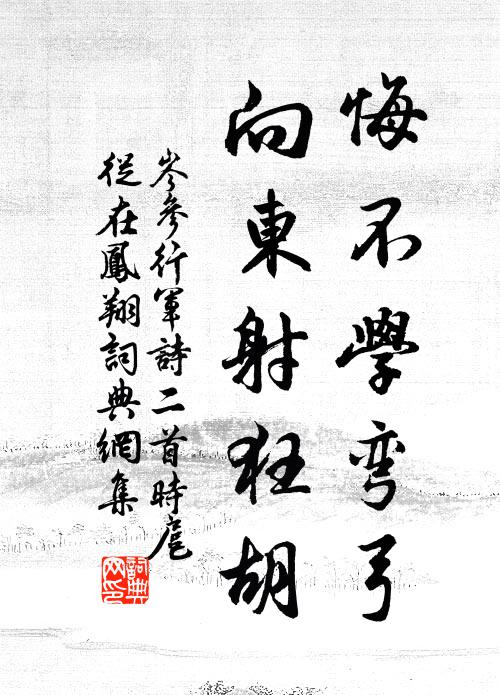 悔不學彎弓
向東射狂胡
岑參行軍詩二首時扈
從在鳳翔詞典網集
詞典網印